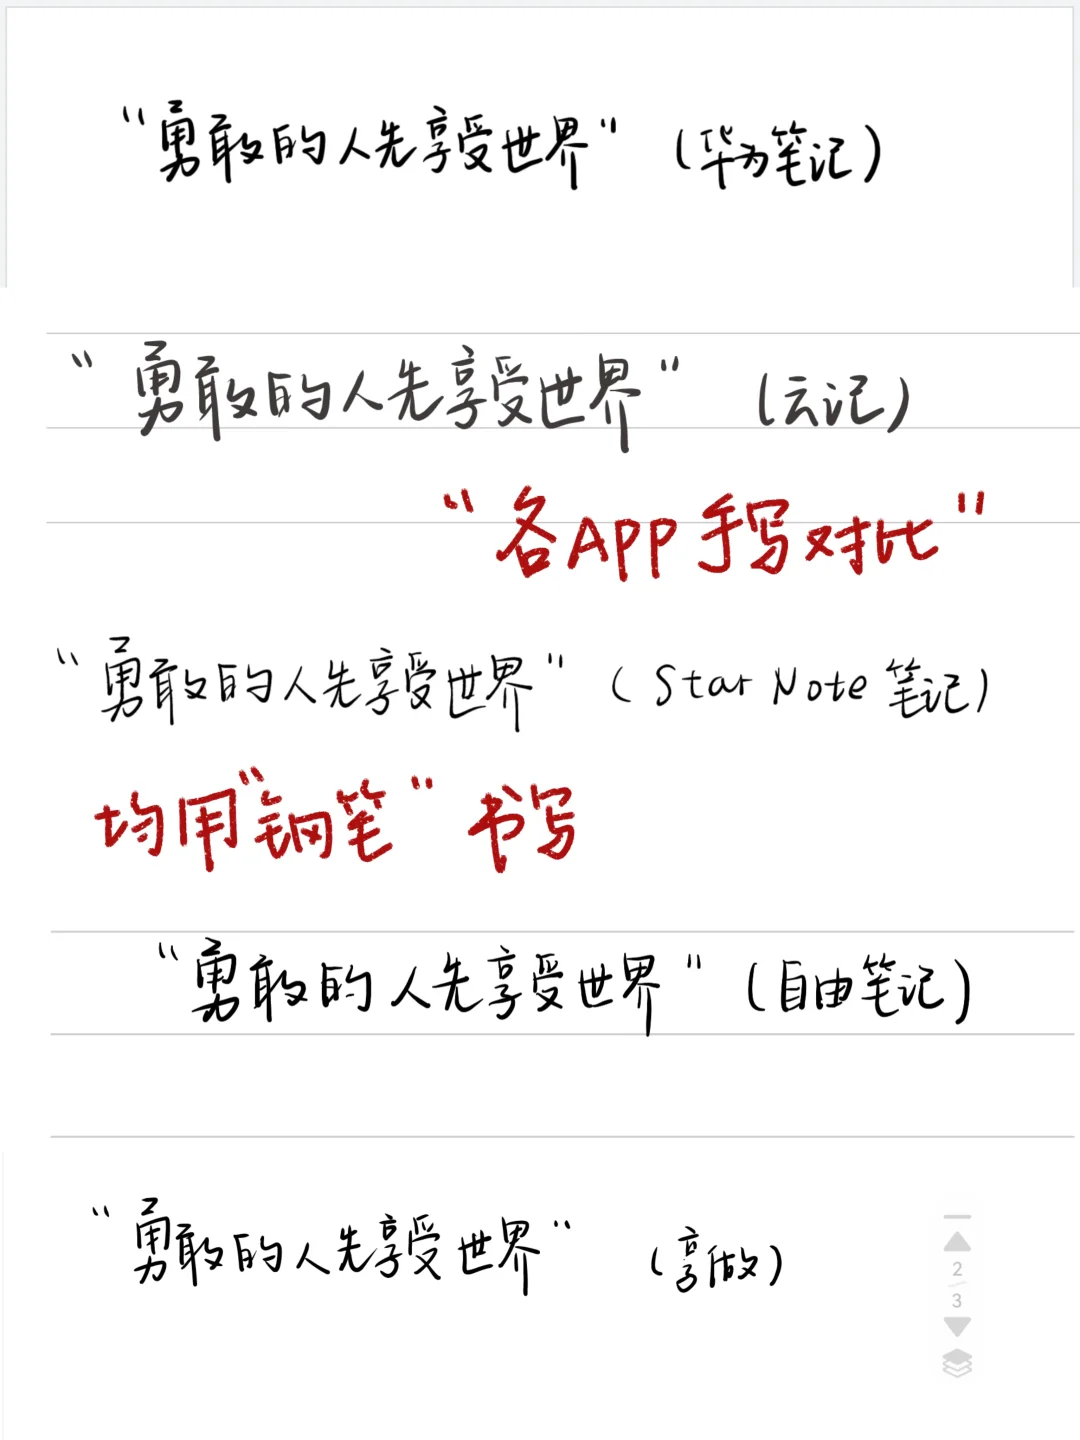 “勇敢的人先享受世界”（华为笔记）
“勇敢的人先享受世界”（云记）
“各APP手写对比”
“勇敢的人先享受世界”（Star Note 笔记）
均用“钢笔”书写
“勇敢的人先享受世界”（自由笔记）
“勇敢的人先享受世界”（享做）
2
3